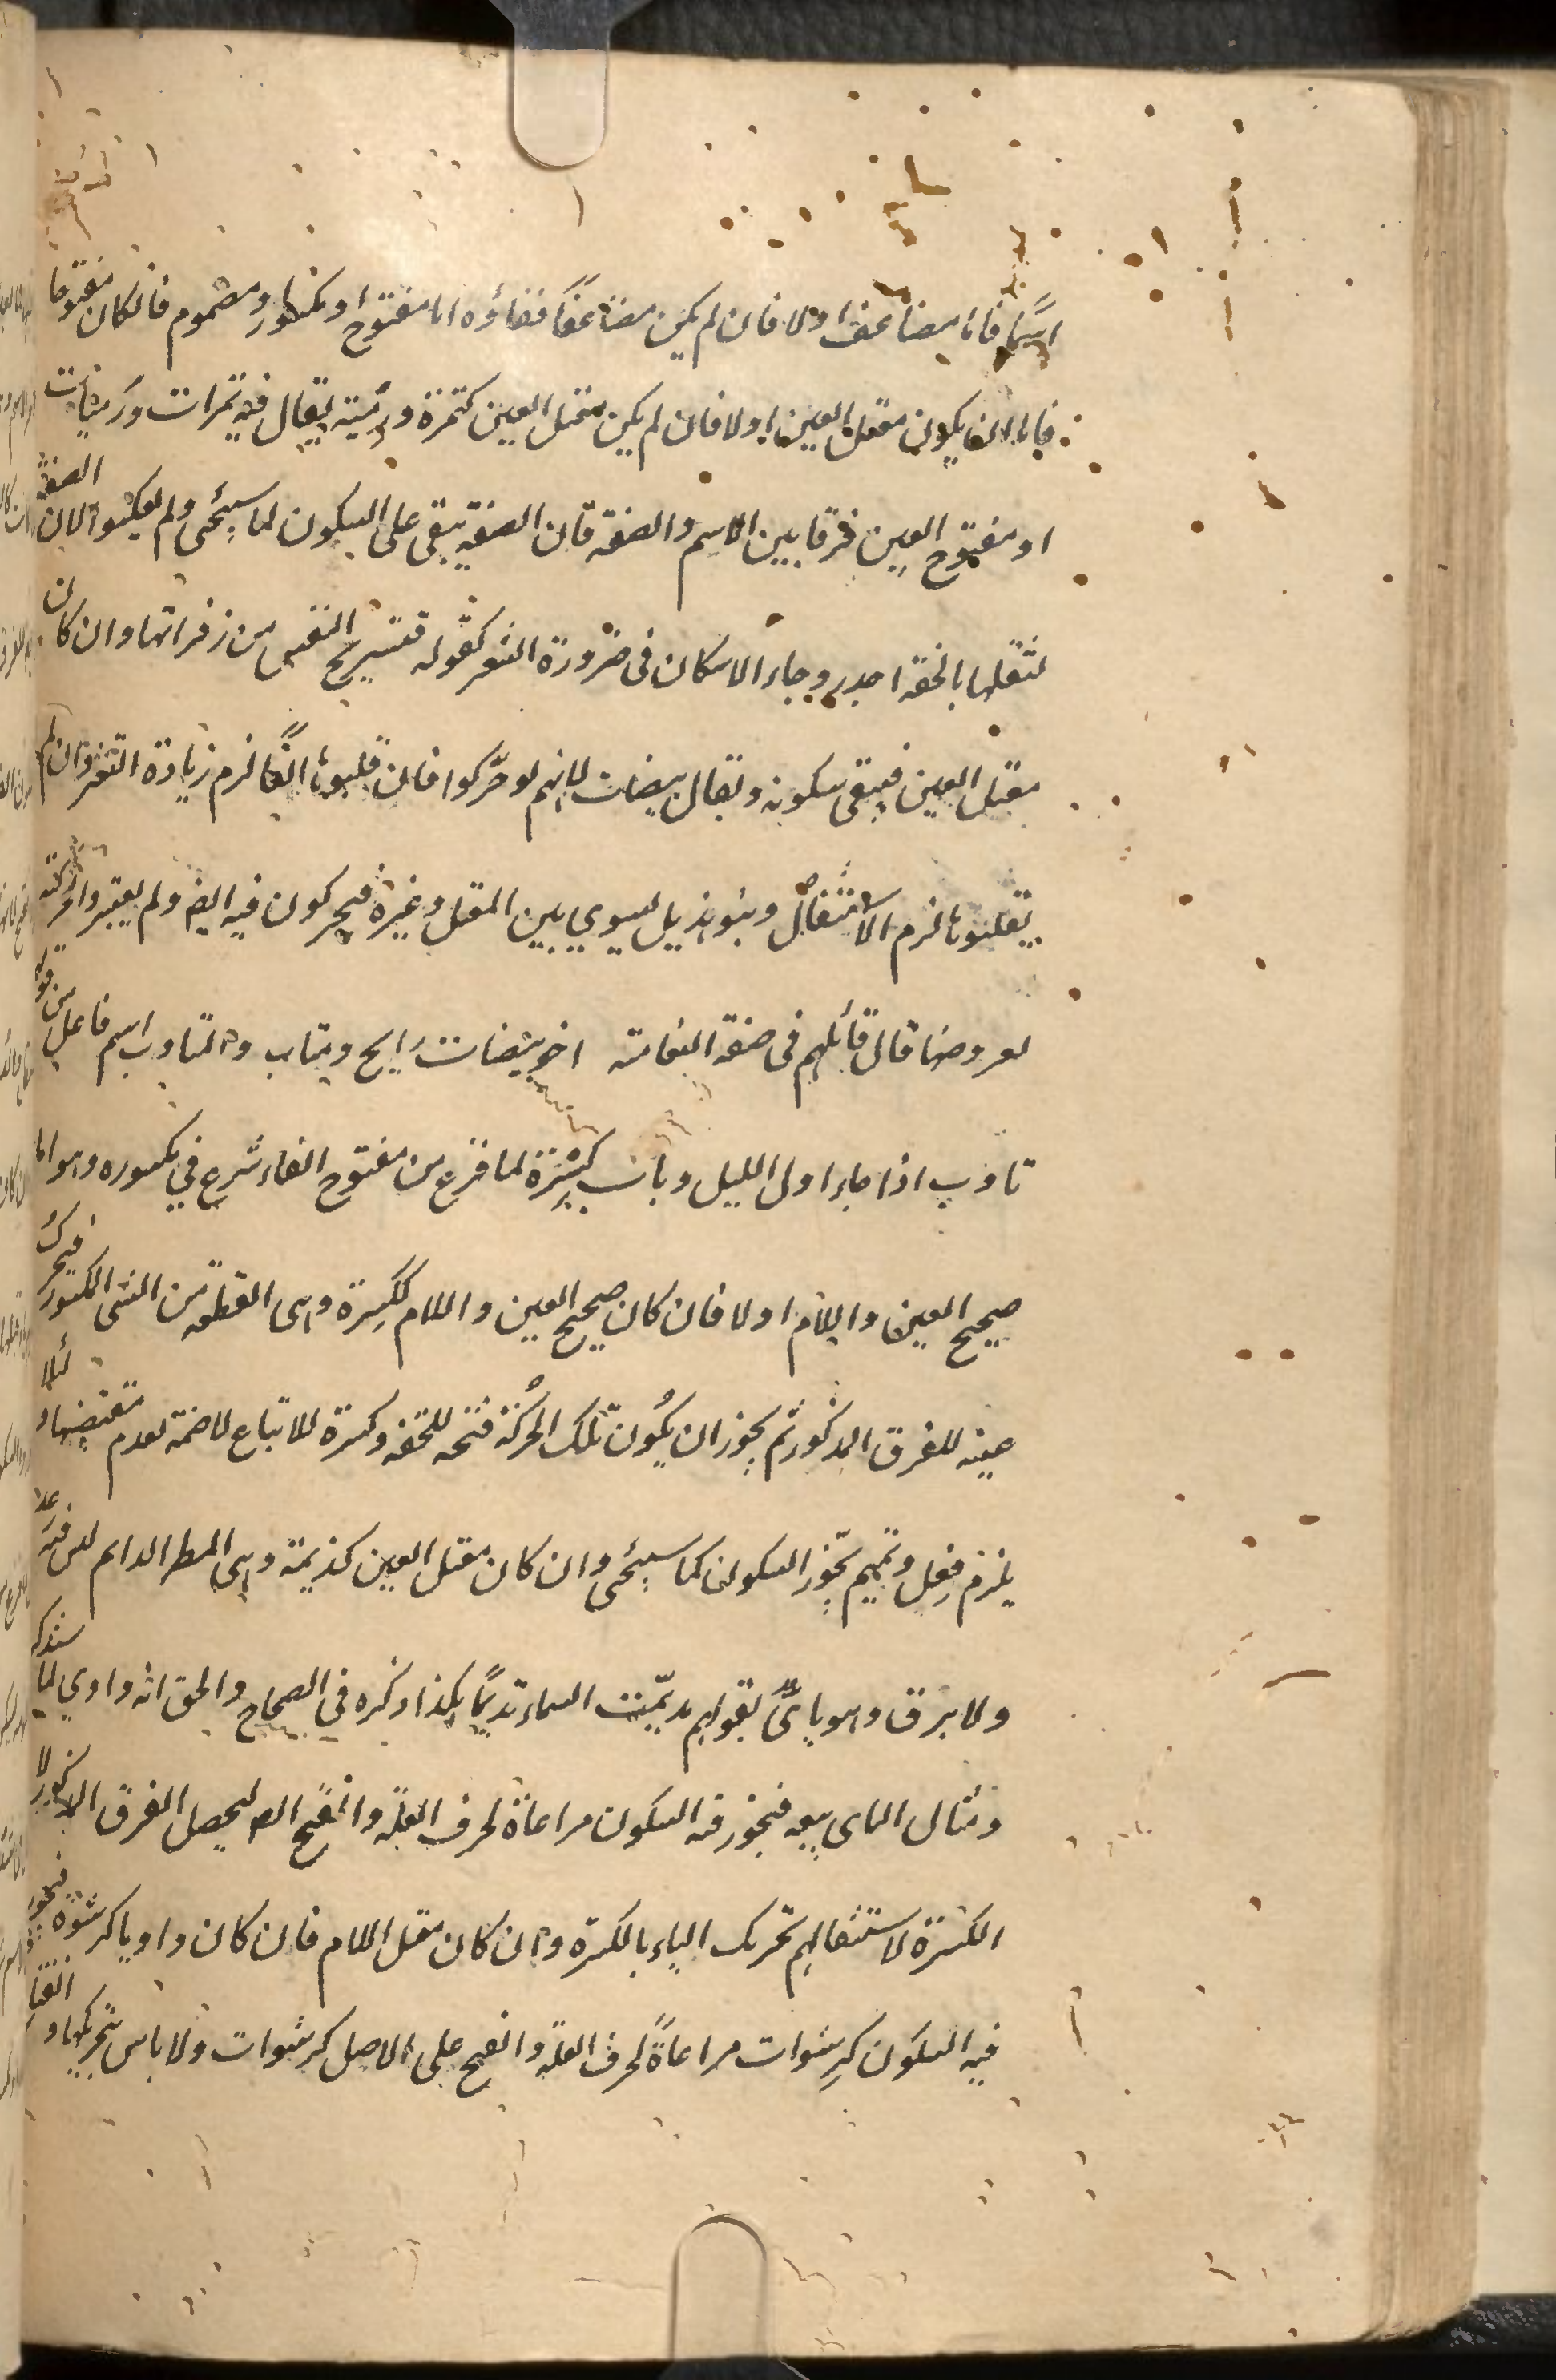 اسمًا فاما مضاعف اولا فان لم يكن مضاعفًا ففاؤه اما مفتوح او مكسور او مضموم فانكان مفتوحا
فاما ان يكون معتل العين اولا فان لم يكن معتل العين كتمرة ورمية يقال فيه تمرات ورميات
او مفتوح العين فرقا بين الاسم والصفة فان الصفة يبقى على السكون لما سيجئ ولم يعكسوا لان الصفة
لثقلها بالخفة اجدر وجاء الاسكان فى ضرورة الشعر كقوله فتستريح النفس من زفراتها وان كان
معتل العين فيبقى سكونه ويقال بيضات لانهم لو حرّكوا فان قلبوها الفًا لزم زيادة التغير وان لم
يقلبوها لزم الاستثقال وبنو هذيل يسوي بين المعتل وغيره فيحركون فيه ايضا ولم يعتبروا حركته
لعروضها قال قائلهم فى صفة النعامة اخو بيضات رايح متاب والمتاوب اسم فاعل من قوله
تاوب اذا جاء اول الليل وباب كسرة لما فرغ من مفتوح الفاء شرع في مكسوره وهو اما
صحيح العين واللام اولا فان كان صحيح العين واللام ككسرة وهى القطعة من الشى المكسور فيحرك
عينه للفرق المذكور ثم يجوز ان يكون تلك الحركة فتحه للخفه وكسرة للاتباع لا ضمة لعدم مقتضيها ولئلا
يلزم فِعُل وتميم تجوّز السكون كما سيجئ وان كان معتل العين كديمة وهى المطر الدايم ليس فيه رعد
ولا برق وهو يائىّ لقولهم ديّمت السماء تديمًا هكذا ذكره في الصحاح والحق انه واوي لما سنذكر
ومثال اليائى بيعه فيجوز فيه السكون مراعاة لحرف العلّة والفتح ايضا ليحصل الفرق المذكور لا
الكسرة لاستثقالهم تحريك الياء بالكسرة وان كان معتل اللام فان كان واويا كرشوة فيجوز
فيه السكون كرِشوات مراعاةً لحرف العلّة والفتح على الاصل كرشوات ولا باس بتحريكها و انفتاح